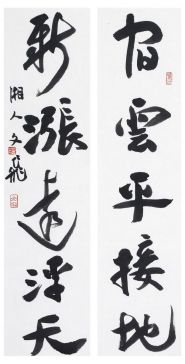 宿雲平接地
新漲遠浮天
湘人文飛